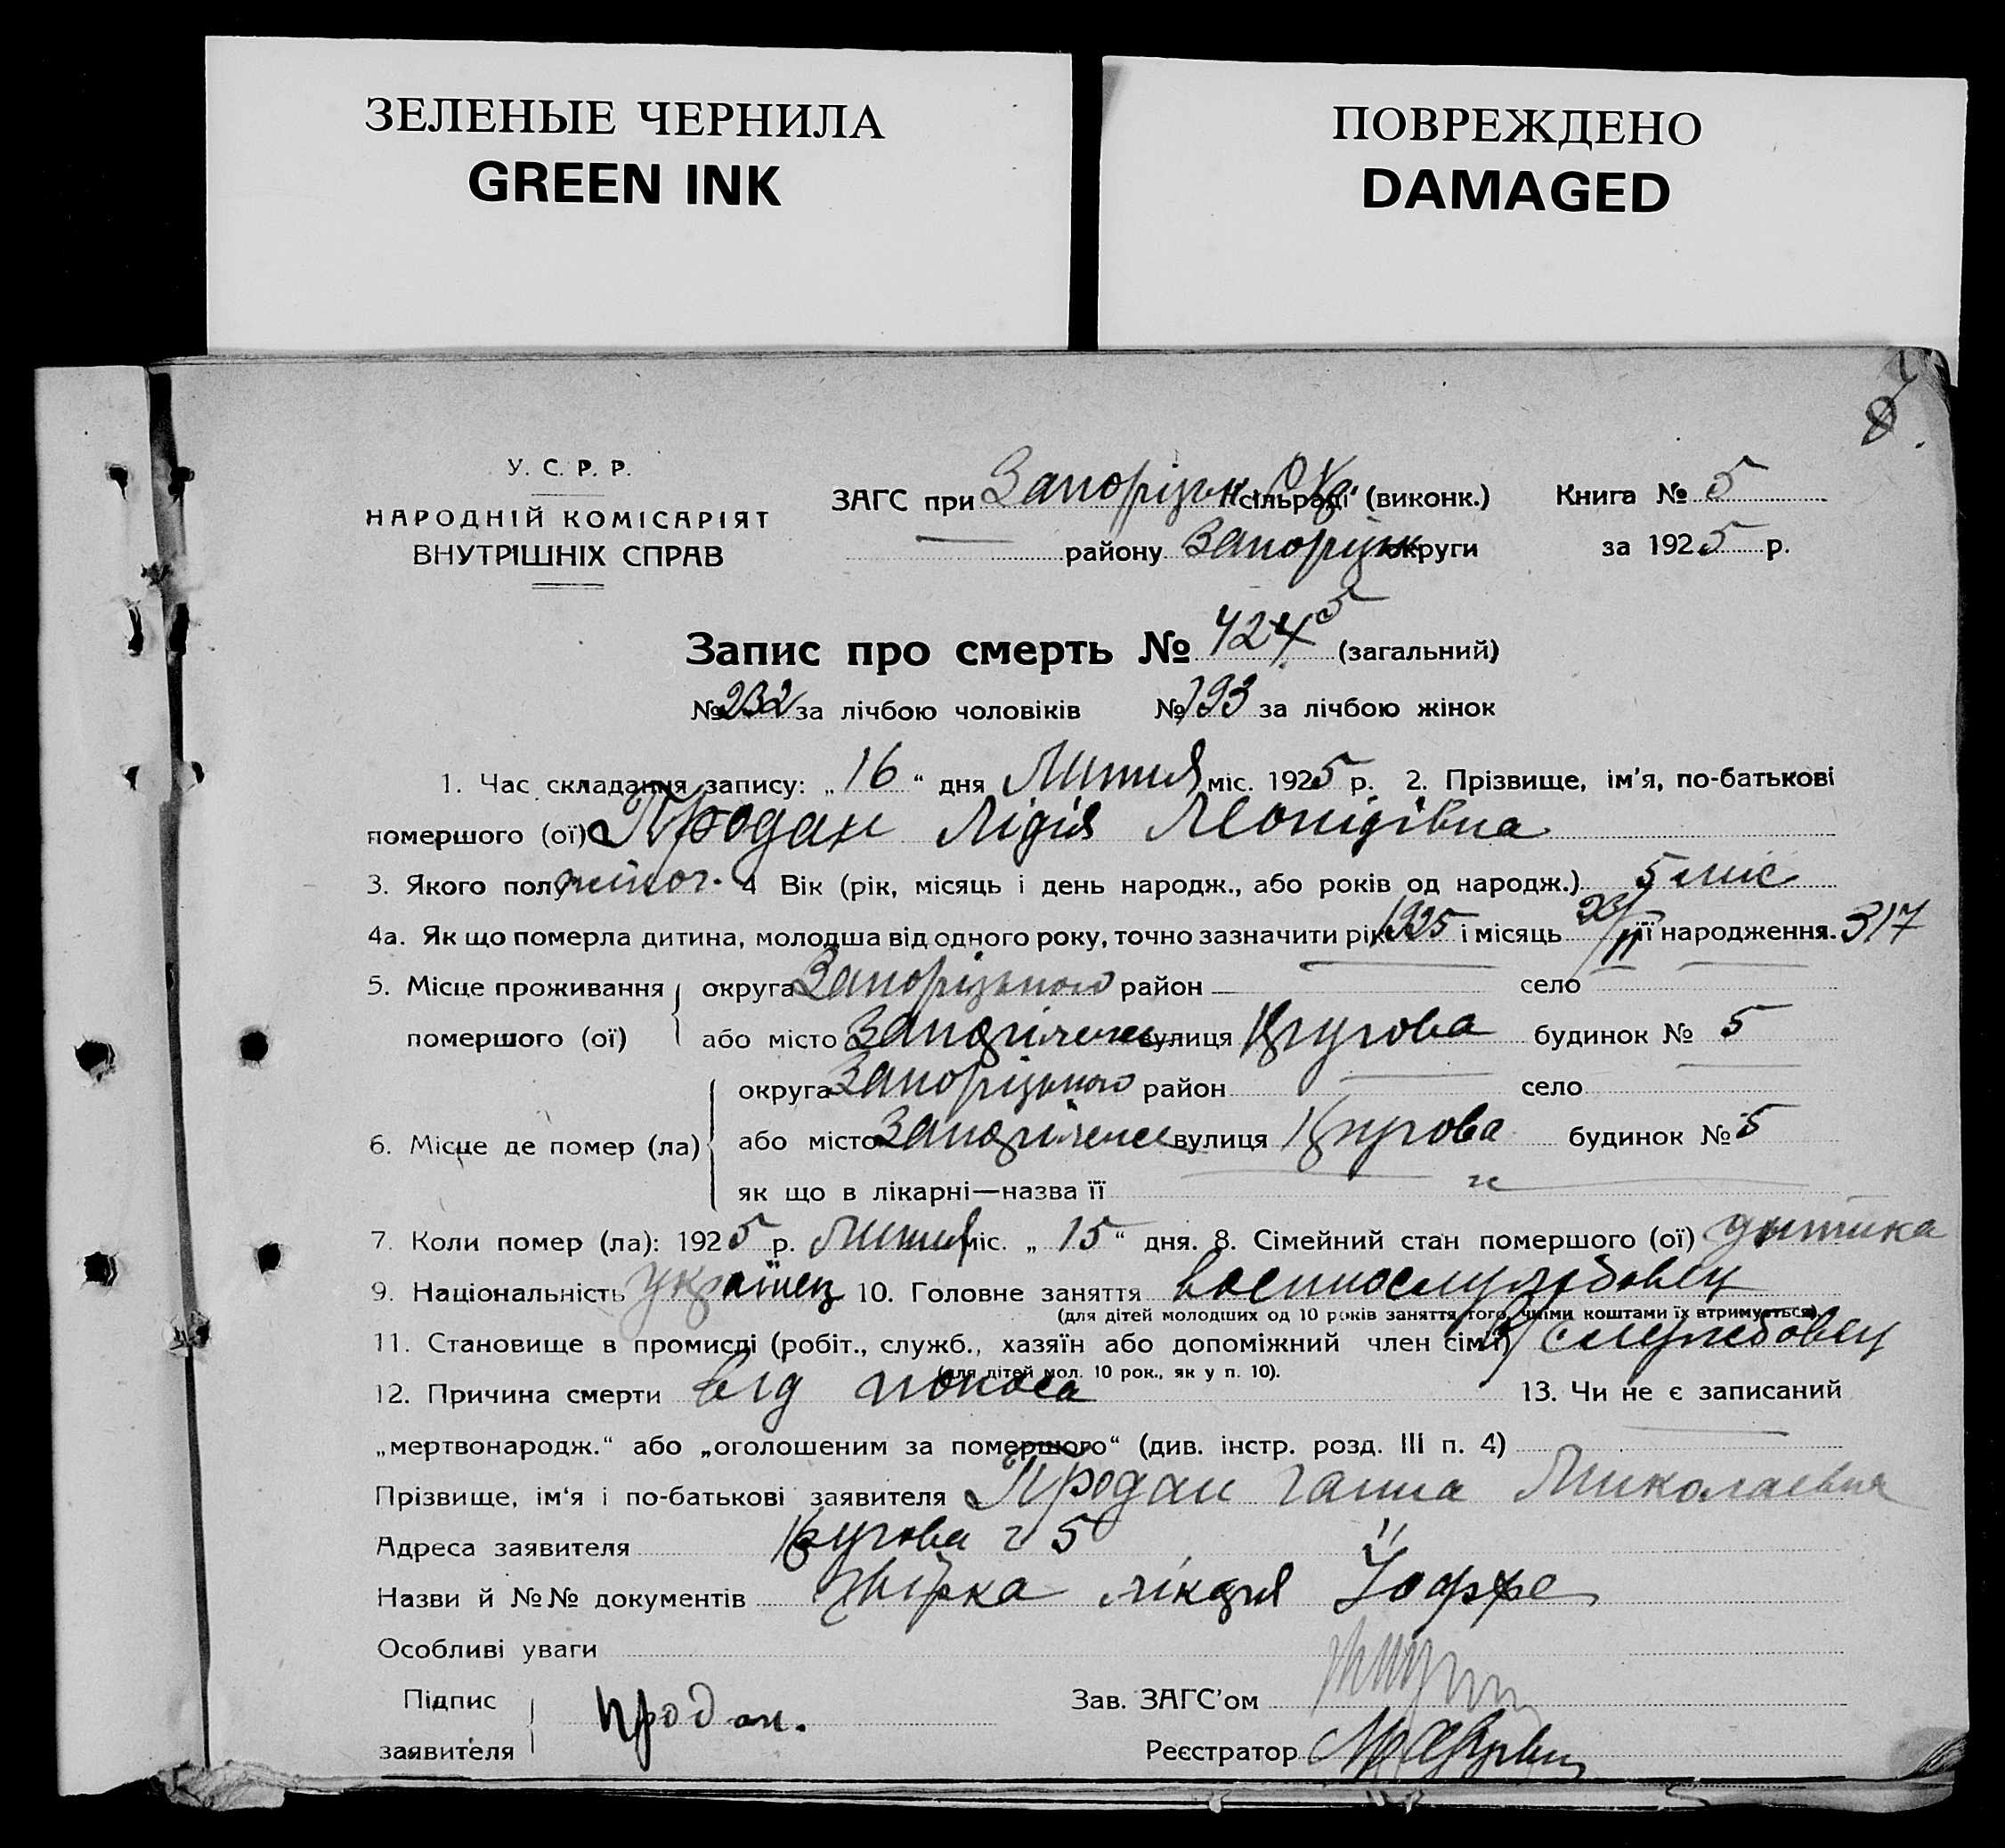 ЗЕЛЕНЫЕ ЧЕРНИЛА
GREEN INK
ПОВРЕЖДЕНО
DAMAGED
8.
У. С. Р. Р.
НАРОДНІЙ КОМІСАРІЯТ
ВНУТРІШНІХ СПРАВ
ЗАГС при Запорізьк. сільраді (виконк.) Книга № 5
району Запорізьк округи за 1925 р.
Запис про смерть № 424 5 (загальний)
№ 232 за лічбою чоловіків № 193 за лічбою жінок
1. Час складання запису: „16“ дня Липня міс. 1925 р. 2. Прізвище, ім'я, по-батькові
помершого (ої) Продан Лідія Леонідівна
3. Якого полу жіноч. 4 Вік (рік, місяць і день народж., або років од народж.) 5 міс
4а. Як що померла дитина, молодша від одного року, точно зазначити рік 1925 і місяць 23/II її народження. 317
5. Місце проживання округа Запорізького район — село —
помершого (ої) або місто Запоріжже вулиця Кругова будинок № 5
округа Запорізького район — село —
6. Місце де помер (ла) або місто Запоріжже вулиця Кругова будинок № 5
як що в лікарні—назва її
7. Коли помер (ла): 1925 р. Липня міс. „15“ дня. 8. Сімейний стан помершого (ої) дитина
9. Національність українец 10. Головне заняття воєннослужбовец
(для дітей молодших од 10 років заняття того, чиїми коштами їх втримується).
11. Становище в промислі (робіт., служб., хазяїн або допоміжний член сім'ї) службовец
(для дітей мол. 10 рок., як у п. 10).
12. Причина смерти від поноса 13. Чи не є записаний
„мертвонародж.“ або „оголошеним за помершого“ (див. інстр. розд. III п. 4) —
Прізвище, ім'я і по-батькові заявителя Продан Ганна Миколаевна
Адреса заявителя Кругова ч 5
Назви й №№ документів лікаря Йоффе
Особливі уваги
Підпис
заявителя Продан.
Зав. ЗАГС'ом
Реєстратор